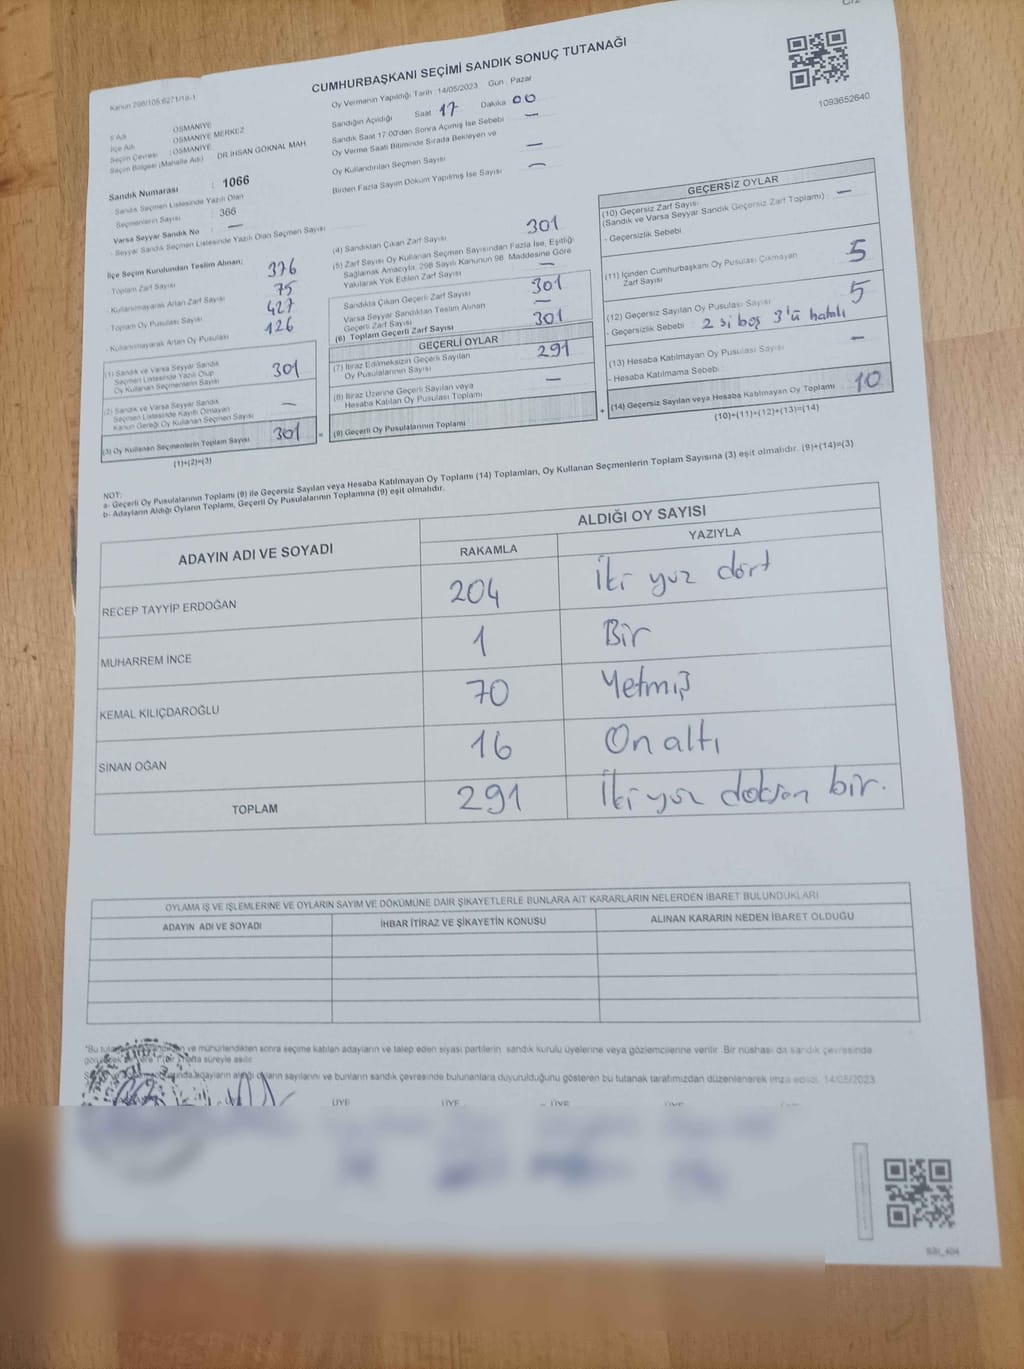 CUMHURBAŞKANI SEÇİMİ SANDIK SONUÇ TUTANAĞI
Kanun 298/105 6271/18-1
1093652640
İl Adı OSMANİYE
İlçe Adı OSMANİYE MERKEZ
Seçim Çevresi : OSMANİYE
Seçim Bölgesi (Mahalle Adı) DR İHSAN GÖKNAL MAH
Sandık Numarası : 1066
Sandık Seçmen Listesinde Yazılı Olan
Seçmenlerin Sayısı : 366
Varsa Seyyar Sandık No : —
- Seyyar Sandık Seçmen Listesinde Yazılı Olan Seçmen Sayısı
Oy Vermenin Yapıldığı Tarih 14/05/2023 Gün : Pazar
Sandığın Açıldığı Saat 17 Dakika 00
Sandık Saat 17:00'den Sonra Açılmış İse Sebebi —
Oy Verme Saati Bitiminde Sırada Bekleyen ve
Oy Kullandırılan Seçmen Sayısı —
Birden Fazla Sayım Döküm Yapılmış İse Sayısı —
İlçe Seçim Kurulundan Teslim Alınan;
- Toplam Zarf Sayısı 376
- Kullanılmayarak Artan Zarf Sayısı 75
- Toplam Oy Pusulası Sayısı 427
- Kullanılmayarak Artan Oy Pusulası 126
(1) Sandık ve Varsa Seyyar Sandık
Seçmen Listesinde Yazılı Olup
Oy Kullanan Seçmenlerin Sayısı 301
(2) Sandık ve Varsa Seyyar Sandık
Seçmen Listesinde Kayıtlı Olmayan
Kanun Gereği Oy Kullanan Seçmen Sayısı —
(3) Oy Kullanan Seçmenlerin Toplam Sayısı 301
(1)+(2)=(3)
(4) Sandıktan Çıkan Zarf Sayısı 301
(5) Zarf Sayısı Oy Kullanan Seçmen Sayısından Fazla İse, Eşitliği
Sağlamak Amacıyla, 298 Sayılı Kanunun 98. Maddesine Göre
Yakılarak Yok Edilen Zarf Sayısı —
Sandıkta Çıkan Geçerli Zarf Sayısı 301
Varsa Seyyar Sandıktan Teslim Alınan
Geçerli Zarf Sayısı —
(6) Toplam Geçerli Zarf Sayısı 301
GEÇERLİ OYLAR
(7) İtiraz Edilmeksizin Geçerli Sayılan
Oy Pusulalarının Sayısı 291
(8) İtiraz Üzerine Geçerli Sayılan veya
Hesaba Katılan Oy Pusulası Toplamı —
(9) Geçerli Oy Pusulalarının Toplamı
GEÇERSİZ OYLAR
(10) Geçersiz Zarf Sayısı
(Sandık ve Varsa Seyyar Sandık Geçersiz Zarf Toplamı) —
- Geçersizlik Sebebi
(11) İçinden Cumhurbaşkanı Oy Pusulası Çıkmayan
Zarf Sayısı 5
(12) Geçersiz Sayılan Oy Pusulası Sayısı 5
- Geçersizlik Sebebi 2 si boş 3'ü hatalı
(13) Hesaba Katılmayan Oy Pusulası Sayısı —
- Hesaba Katılmama Sebebi
(14) Geçersiz Sayılan veya Hesaba Katılmayan Oy Toplamı 10
(10)+(11)+(12)+(13)=(14)
NOT:
a- Geçerli Oy Pusulalarının Toplamı (9) ile Geçersiz Sayılan veya Hesaba Katılmayan Oy Toplamı (14) Toplamları, Oy Kullanan Seçmenlerin Toplam Sayısına (3) eşit olmalıdır. (9)+(14)=(3)
b- Adayların Aldığı Oyların Toplamı, Geçerli Oy Pusulalarının Toplamına (9) eşit olmalıdır.
ADAYIN ADI VE SOYADI
ALDIĞI OY SAYISI
RAKAMLA YAZIYLA
RECEP TAYYİP ERDOĞAN 204 İki yüz dört
MUHARREM İNCE 1 Bir
KEMAL KILIÇDAROĞLU 70 Yetmiş
SİNAN OĞAN 16 On altı
TOPLAM 291 İki yüz doksan bir.
OYLAMA İŞ VE İŞLEMLERİNE VE OYLARIN SAYIM VE DÖKÜMÜNE DAİR ŞİKAYETLERLE BUNLARA AİT KARARLARIN NELERDEN İBARET BULUNDUKLARI
ADAYIN ADI VE SOYADI İHBAR İTİRAZ VE ŞİKAYETİN KONUSU ALINAN KARARIN NEDEN İBARET OLDUĞU
"Bu ve mühürlendikten sonra seçime katılan adayların ve talep eden siyasi partilerin sandık kurulu üyelerine veya gözlemcilerine verilir. Bir nüshası da sandık çevresinde
hafta süreyle asılır
adayların aldığı oyların sayılarını ve bunların sandık çevresinde bulunanlara duyurulduğunu gösteren bu tutanak tarafımızdan düzenlenerek imza edildi. 14/05/2023
ÜYE ÜYE ÜYE ÜYE